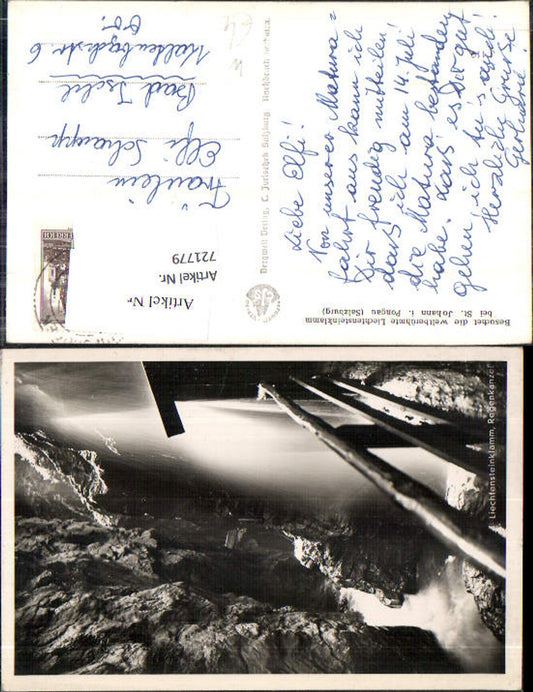 Liebe Elfi!
Von unserer Matura =
fahrt aus kann ich
Dir freudig mitteilen
dass ich am 14. Juli
die Matura bestanden
habe. dass es Dir gut
gehen! ich tu's auch!
Herzliche Grüße
Gertraud
Besuchet die weltberühmte Liechtensteinklamm
bei St. Johann i. Pongau (Salzburg)
Bergwelt Verlag, C. Jurischek Salzburg
Fräulein
Elfi Schaupp
Bad Ischl
Artikel Nr.
721779
Artikel Nr
Liechtensteinklamm, Regenkanzel